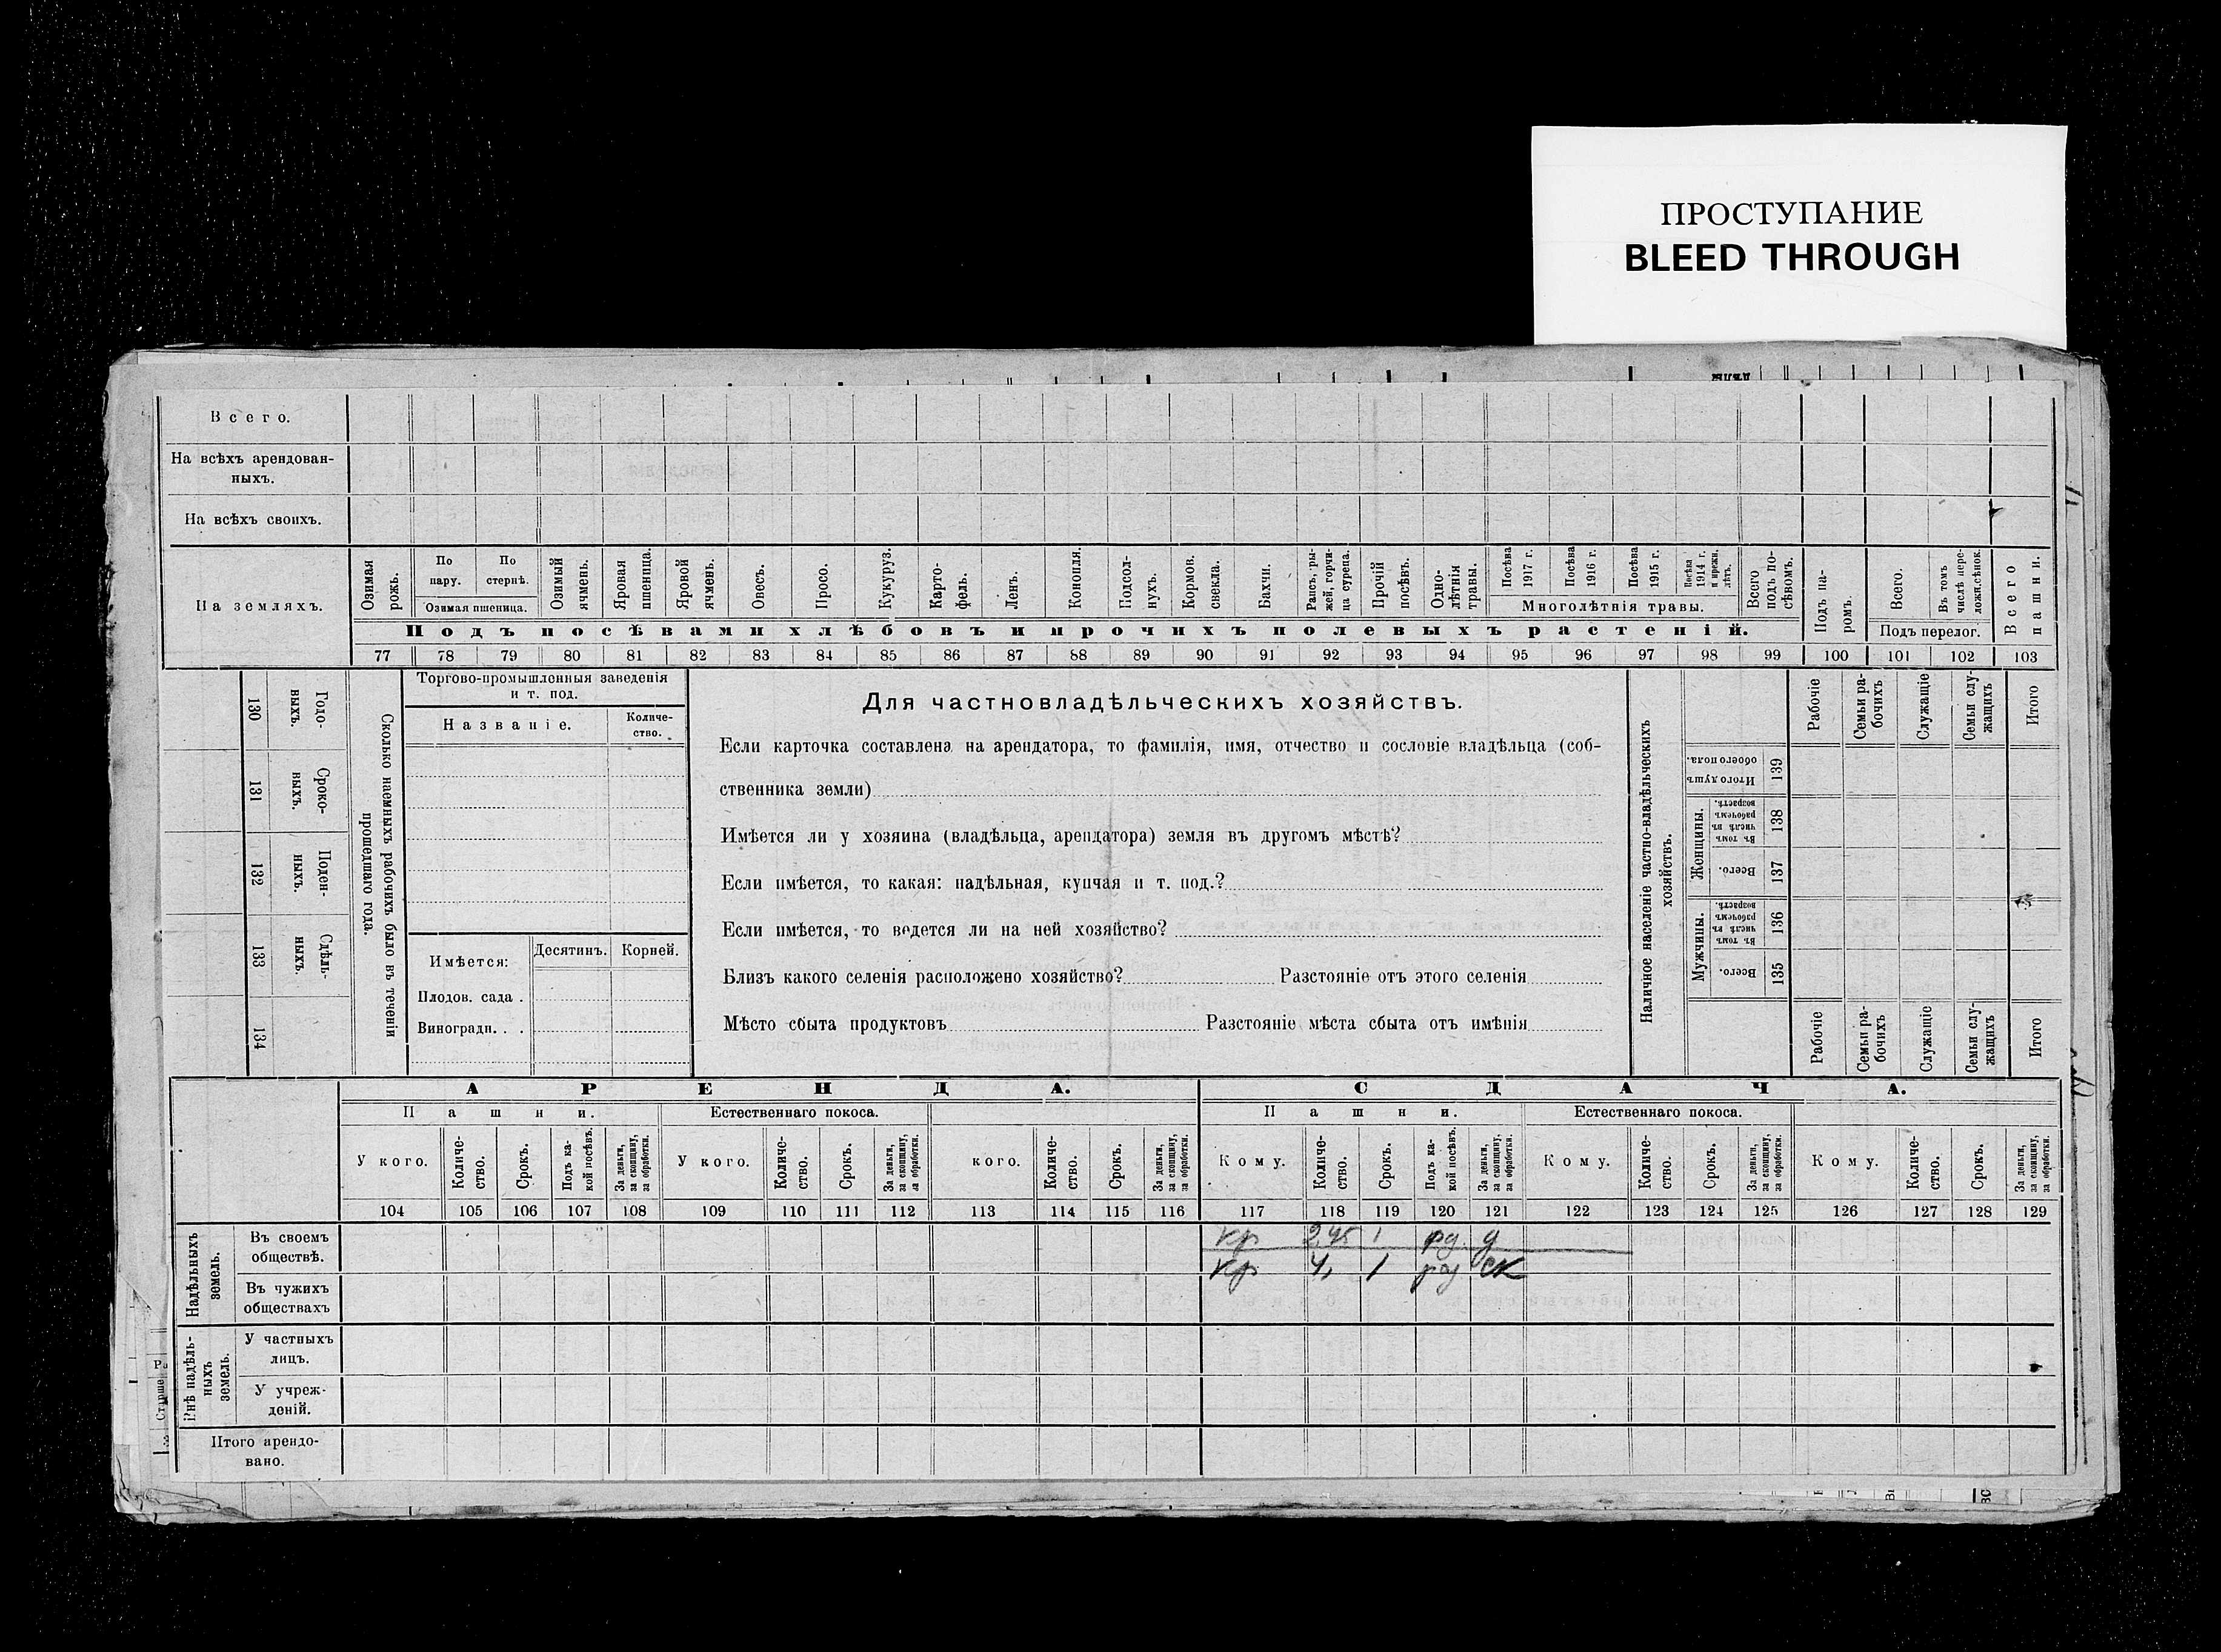 ПРОСТУПАНИЕ
BLEED THROUGH
Всего.
На всѣхъ арендован-
ныхъ.
На всѣхъ своихъ.
На земляхъ.
Озимая рожь.
По пару.
По стернѣ.
Озимая пшеница.
Озимый ячмень.
Яровая пшеница.
Яровой ячмень.
Овесъ.
Просо.
Кукуруз.
Карто-
фель.
Ленъ.
Конопля.
Подсол-
нухъ.
Кормов. свекла.
Бахчи.
Рапсъ, ры-
жей, горчи-
ца сурепа.
Прочій посѣвъ.
Одно-
лѣтнія травы.
Посѣва 1917 г.
Посѣва 1916 г.
Посѣва 1915 г.
Посѣва 1914 г. и прежн. лѣтъ.
Многолѣтнія травы.
Всего подъ по-
сѣвомъ.
Подъ па-
ромъ.
Всего.
Въ томъ числѣ пере-
ложн.сѣнок.
Подъ перелог.
Всего пашни.
Подъ посѣвами хлѣбовъ и прочихъ полевыхъ растеній.
77 78 79 80 81 82 83 84 85 86 87 88 89 90 91 92 93 94 95 96 97 98 99 100 101 102 103
130 Годо-
выхъ.
131 Сроко-
выхъ.
132 Поден-
ныхъ.
133 Сдѣль-
ныхъ.
134
Сколько наемныхъ рабочихъ было въ теченіи
прошедшаго года.
Торгово-промышленныя заведенія
и т. под.
Названіе.
Количе-
ство.
Имѣется:
Десятинъ.
Корней.
Плодов. сада .
Виноградн. . .
Для частновладѣльческихъ хозяйствъ.
Если карточка составлена на арендатора, то фамилія, имя, отчество и сословіе владѣльца (соб-
ственника земли)
Имѣется ли у хозяина (владѣльца, арендатора) земля въ другомъ мѣстѣ?
Если имѣется, то какая: надѣльная, купчая и т. под.?
Если имѣется, то ведется ли на ней хозяйство?
Близъ какого селенія расположено хозяйство? Разстояніе отъ этого селенія
Мѣсто сбыта продуктовъ Разстояніе мѣста сбыта отъ имѣнія
Наличное населеніе частно-владѣльческихъ
хозяйствъ.
Рабочіе
Семьи ра-
бочихъ
Служащіе
Семьи слу-
жащихъ
Итого
Итого душъ обоего пола.
139
Женщины.
Въ томъ числѣ въ рабочемъ возрастѣ.
138
Всего.
137
Мужчины.
Въ томъ числѣ въ рабочемъ возрастѣ.
136
Всего.
135
Рабочіе
Семьи ра-
бочихъ
Служащіе
Семьи слу-
жащихъ
Итого
АРЕНДА.
СДАЧА.
Пашни.
Естественнаго покоса.
Пашни.
Естественнаго покоса.
У кого.
Количе-
ство.
Срокъ.
Подъ ка-
кой посѣвъ.
За деньги, за скопщину, за обработки.
У кого.
Количе-
ство.
Срокъ.
За деньги, за скопщину, за обработки.
кого.
Количе-
ство.
Срокъ.
За деньги, за скопщину, за обработки.
Кому.
Количе-
ство.
Срокъ.
Подъ ка-
кой посѣвъ.
За деньги, за скопщину, за обработки.
Кому.
Количе-
ство.
Срокъ.
За деньги, за скопщину, за обработки.
Кому.
Количе-
ство.
Срокъ.
За деньги, за скопщину, за обработки.
104 105 106 107 108 109 110 111 112 113 114 115 116 117 118 119 120 121 122 123 124 125 126 127 128 129
Надѣльныхъ земель.
Въ своемъ
обществѣ.
кр 1 д
кр 4, 1 ск
Въ чужихъ
обществахъ
Внѣ надѣль-
ныхъ земель.
У частныхъ
лицъ.
У учреж-
деній.
Итого арендо-
вано.